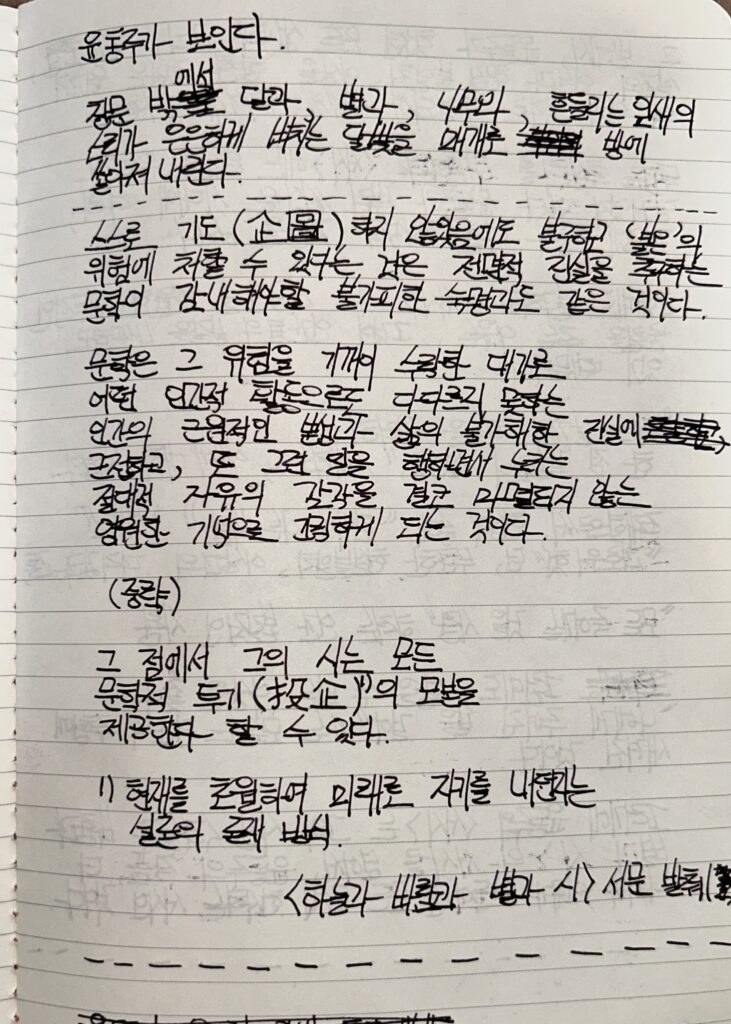 윤동주가 보인다.
에선
창문 밖 달과, 별과, 나무와, 흔들리는 잎새의
소리가 은은하게 비치는 달빛을 매개로 방에
쏟아져 내린다.
스스로 기도(企圖)하지 않았음에도 불구하고 '불온'의
위험에 처할 수 있다는 것은 전면적 진실을 추구하는
문학이 감내해야할 불가피한 숙명과도 같은 것이다.
문학은 그 위험을 기꺼이 수락한 대가로
어떤 인간적 활동으로도 다다르지 못하는
인간의 근원적인 본성과 삶의 불가해한 진실에
근접하고, 또 그런 일을 행하면서 누리는
절대적 자유의 감각을 결코 마멸되지 않는
영원한 기억으로 간직하게 되는 것이다.
(중략)
그 점에서 그의 시는 모든
문학적 투기(投企)¹⁾의 모범을
제공한다 할 수 있다.
1) 현재를 초월하여 미래로 자기를 내던지는
실존의 존재 방식.
<하늘과 바람과 별과 시> 서문 발췌